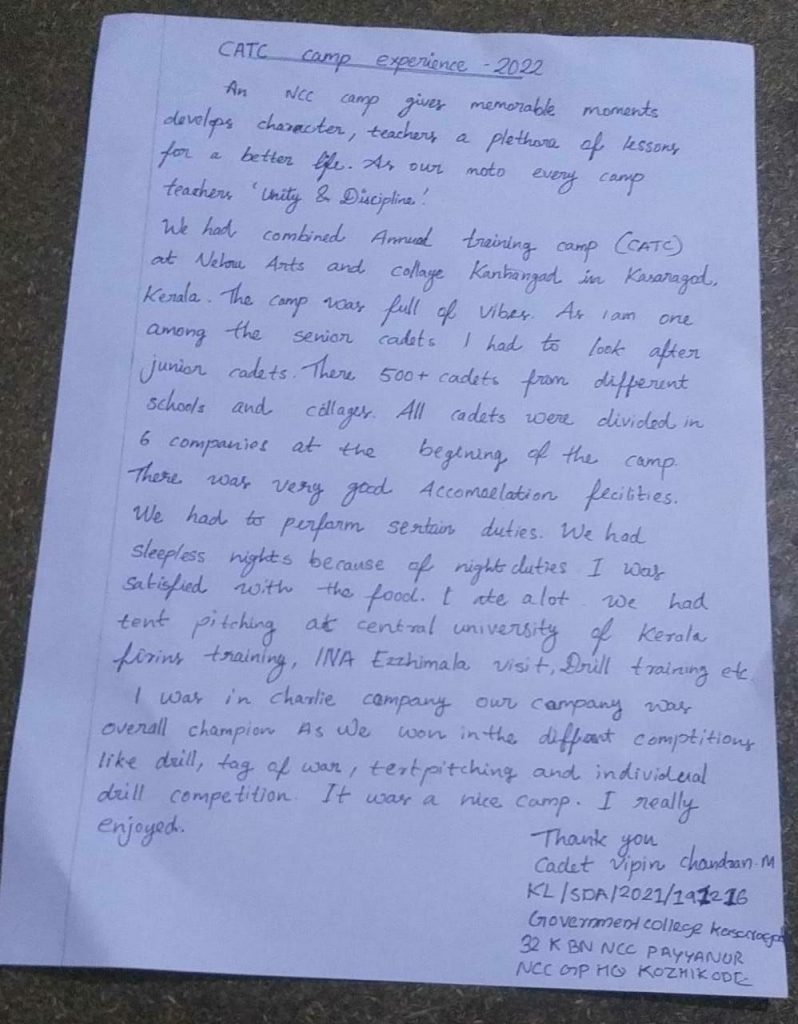 CATC camp experience - 2022
An NCC camp gives memorable moments
develops character, teachers a plethora of lessons
for a better life. As our moto every camp
teachers 'Unity & Discipline'.
We had combined Annual training camp (CATC)
at Nehru Arts and collage Kanhangad in Kasaragod,
Kerala. The camp was full of vibes. As i am one
among the senior cadets I had to look after
junior cadets. There 500+ cadets from different
schools and collages. All cadets were divided in
6 companies at the begining of the camp.
There was very good Accomaelation fecilities.
We had to perform sertain duties. We had
sleepless nights because of night duties I was
satisfied with the food. I ate alot. we had
tent pitching at central university of Kerala
firins training, INA Ezzhimala visit, Drill training etc.
I was in charlie company our company was
overall champion As We won in the diffrant comptitions
like drill, tag of war, tertpitching and individual
drill competition. It was a nice camp. I really
enjoyed.
Thank you
Cadet Vipin Chandran. M
KL/SDA/2021/191216
Government college kasaragod
32 K BN NCC PAYYANUR
NCC GP HQ KOZHIKODE